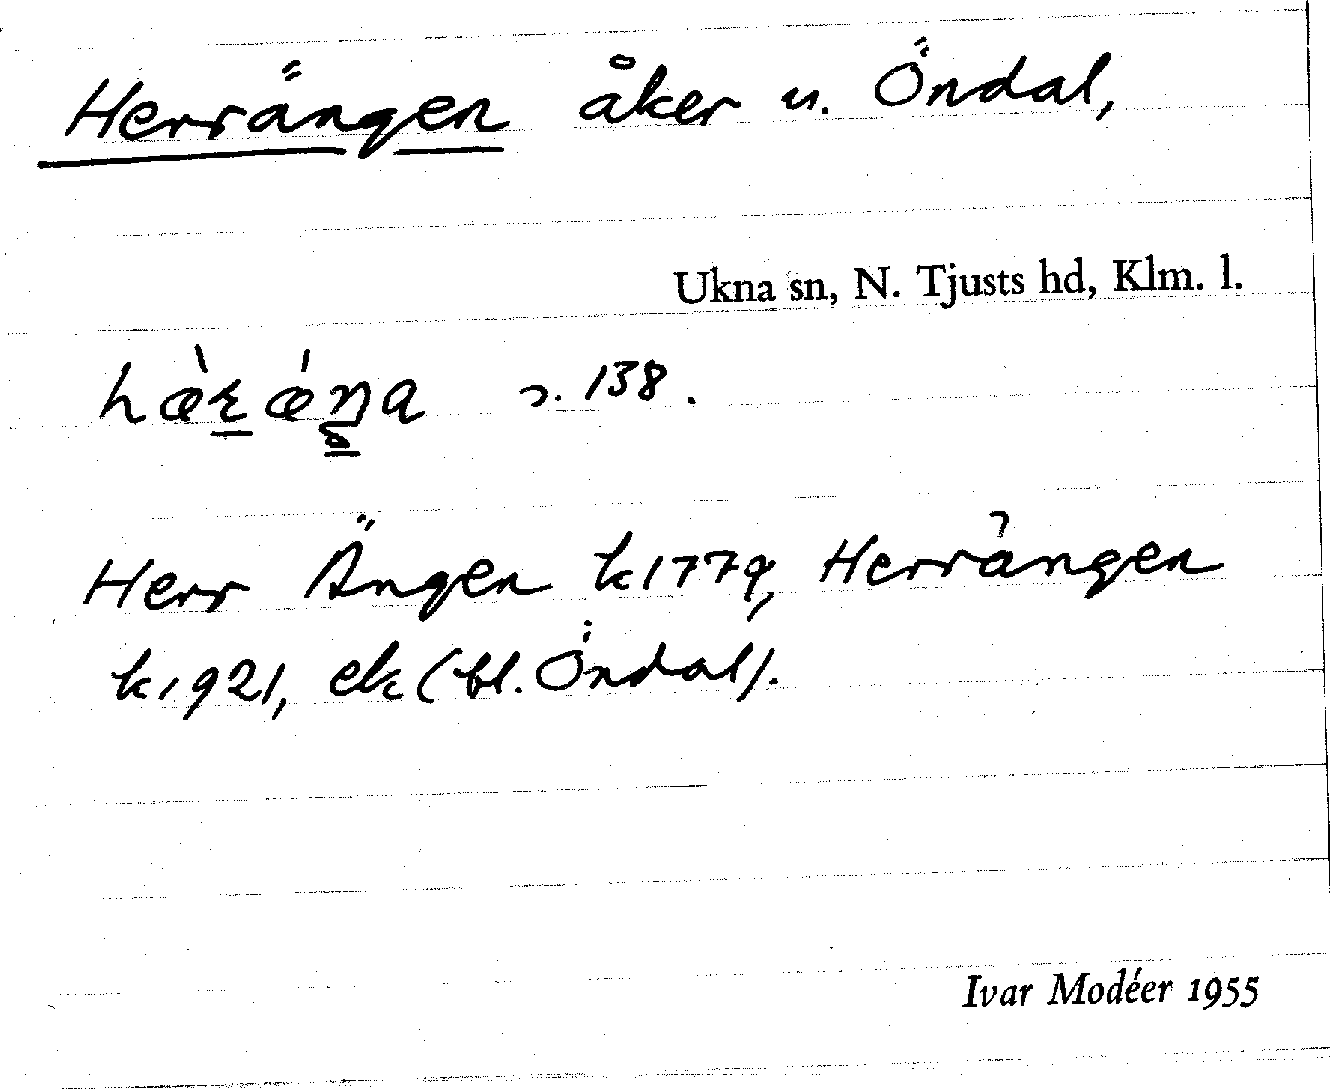 Herrängen åker u. Öndal,
Ukna sn, N. Tjusts hd, Klm. l.
hæ̀ræ̀ŋa s. 138.
Herr Ängen k 1779, Herrängen
k 1921, ek (bl. Öndal).
Ivar Modéer 1955